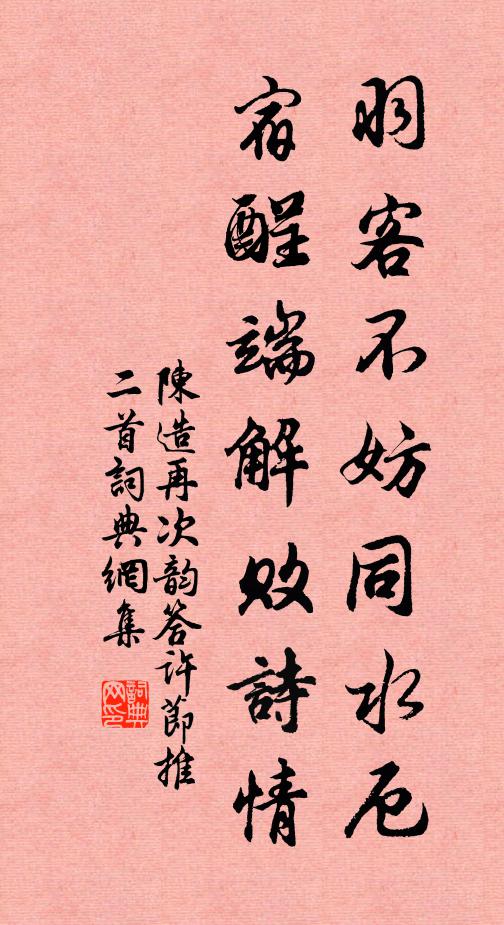 羽客不妨同水厄
宿酲端解敗詩情
陳造再次韵答許節推
二首詞典網集
詞典
网印